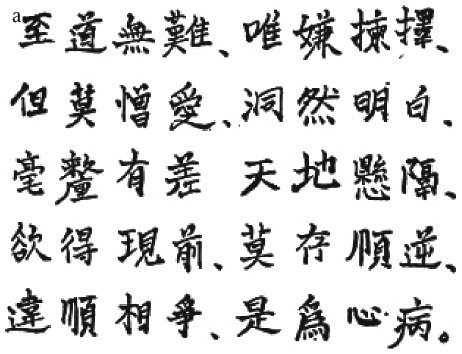 a至道無難、唯嫌揀擇、
但莫憎愛、洞然明白、
毫釐有差 天地懸隔、
欲得現前、莫存順逆、
違順相爭、是爲心病。